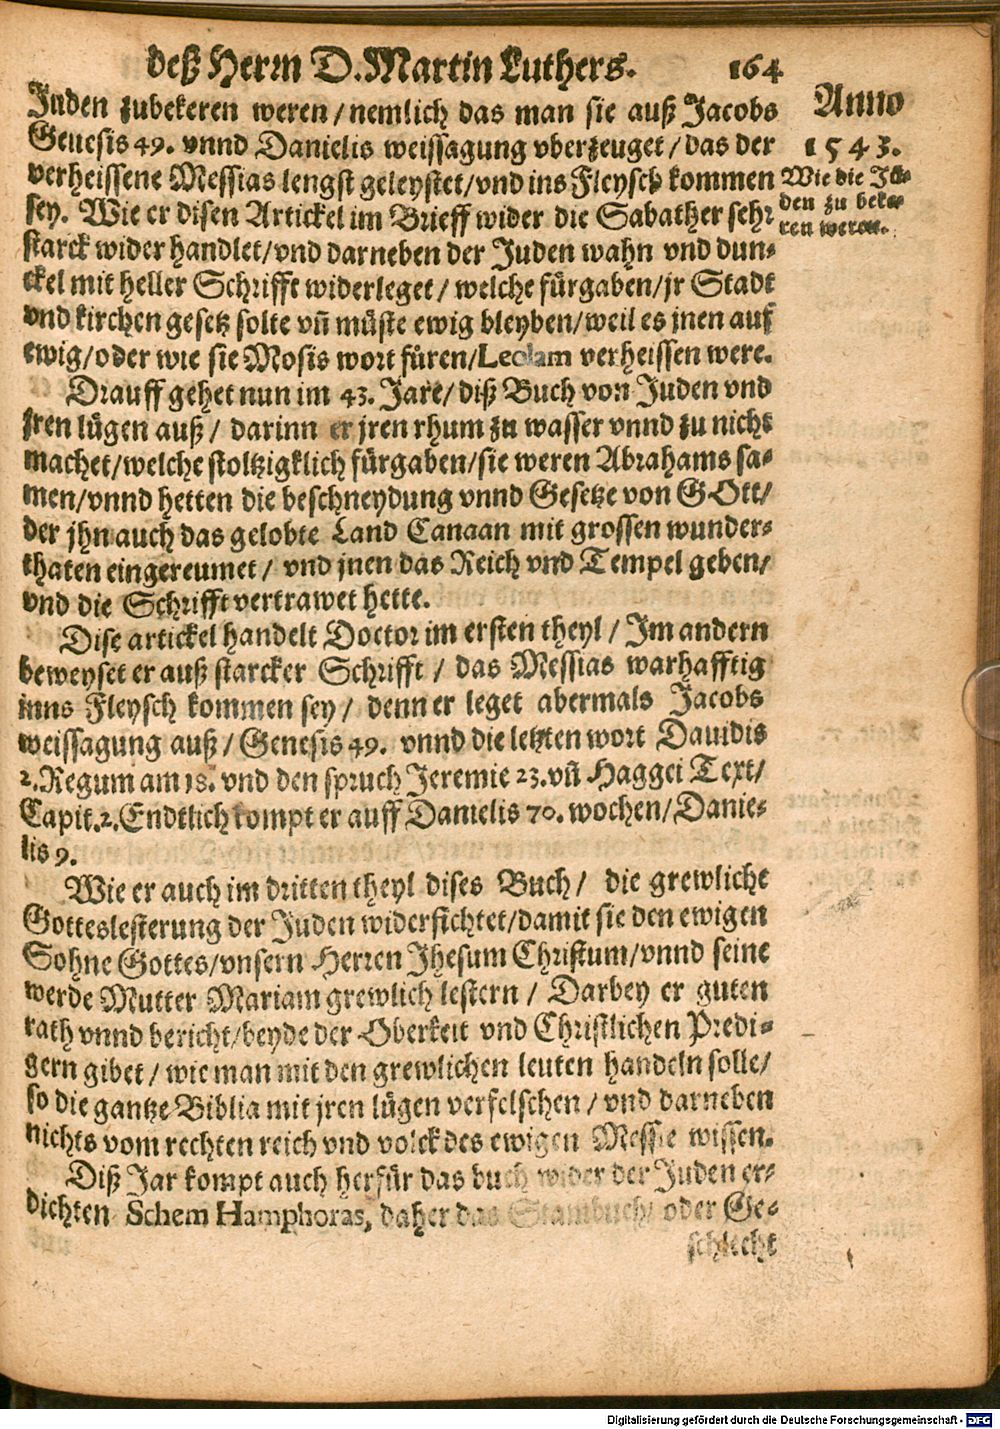 deß Herrn D. Martin Luthers. 164
Anno
1543.
Wie die Jü-
den zu beke-
ren weren.
Juden zubekeren weren / nemlich das man sie auß Jacobs
Genesis 49. vnnd Danielis weissagung vberzeuget / das der
verheissene Messias lengst geleystet / vnd ins Fleysch kommen
sey. Wie er disen Artickel im Brieff wider die Sabather sehr
starck wider handlet / vnd darneben der Juden wahn vnd dun-
ckel mit heller Schrifft widerleget / welche fürgaben / jr Stadt
vnd kirchen gesetz solte vñ müste ewig bleyben / weil es jnen auf
ewig / oder wie sie Mosis wort füren / Leolam verheissen were.
Drauff gehet nun im 43. Jare / diß Buch von Juden vnd
jren lügen auß / darinn er jren rhum zu wasser vnnd zu nicht
machet / welche stoltzigklich fürgaben / sie weren Abrahams sa-
men / vnnd hetten die beschneydung vnnd Gesetze von GOtt /
der jhn auch das gelobte Land Canaan mit grossen wunder-
thaten eingereumet / vnd jnen das Reich vnd Tempel geben /
vnd die Schrifft vertrawet hette.
Dise artickel handelt Doctor im ersten theyl / Im andern
beweyset er auß starcker Schrifft / das Messias warhafftig
inns Fleysch kommen sey / denn er leget abermals Jacobs
weissagung auß / Genesis 49. vnnd die letzten wort Dauidis
2. Regum am 18. vnd den spruch Jeremie 23. vñ Haggei Text /
Capit. 2. Endtlich kompt er auff Danielis 70. wochen / Danie-
lis 9.
Wie er auch im dritten theyl dises Buch / die grewliche
Gotteslesterung der Juden widerfichtet / damit sie den ewigen
Sohne Gottes / vnsern Herren Jhesum Christum / vnnd seine
werde Mutter Mariam grewlich lestern / Darbey er guten
rath vnnd bericht / beyde der Oberkeit vnd Christlichen Predi-
gern gibet / wie man mit den grewlichen leuten handeln solle /
so die gantze Biblia mit jren lügen verfelschen / vnd darneben
nichts vom rechten reich vnd volck des ewigen Messie wissen.
Diß Jar kompt auch herfür das buch wider der Juden er-
dichten Schem Hamphoras, daher das Stambuch oder Ge-
schlecht
Digitalisierung gefördert durch die Deutsche Forschungsgemeinschaft - DFG